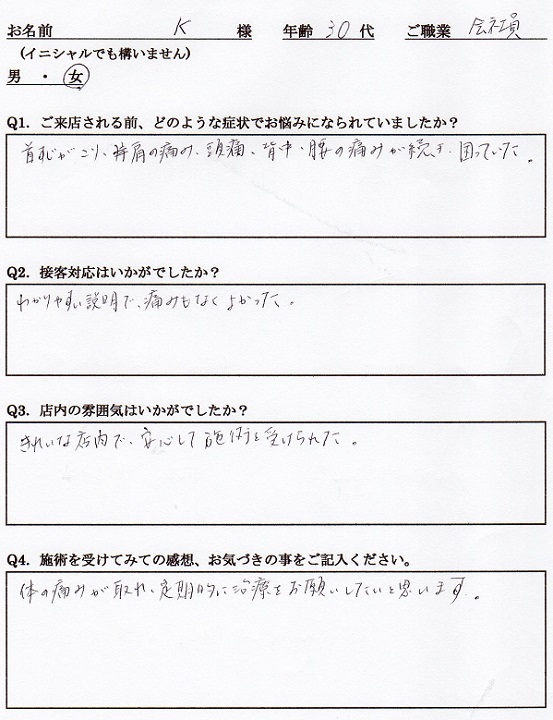 お名前 K 様 年齢 30 代 ご職業 会社員
(イニシャルでも構いません)
男 ・ 女
Q1. ご来店される前、どのような症状でお悩みになられていましたか？
首すじがこり、肩の痛み、頭痛、背中・腰の痛みが続き、困っていた。
Q2. 接客対応はいかがでしたか？
わかりやすい説明で、痛みもなくよかった。
Q3. 店内の雰囲気はいかがでしたか？
きれいな店内で、安心して施術を受けられた。
Q4. 施術を受けてみての感想、お気づきの事をご記入ください。
体の痛みが取れ、定期的に治療をお願いしたいと思います。